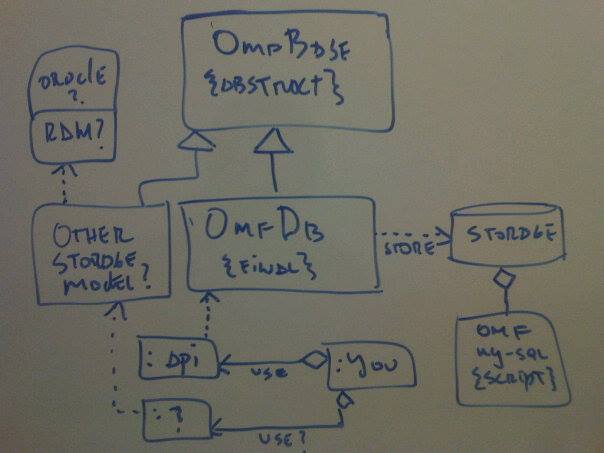 OmfBase
{abstract}
oracle
?
RDM?
Other
storage
model?
OmfDb
{final}
store
storage
omf
my-sql
{script}
:api
use
:You
:?
use?